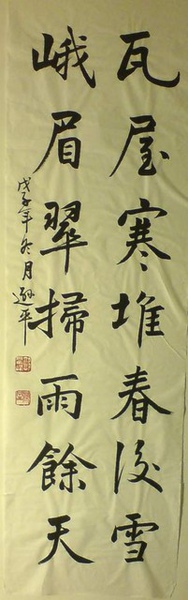 瓦屋寒堆春後雪
峨眉翠掃雨餘天
戊子年冬月遜平